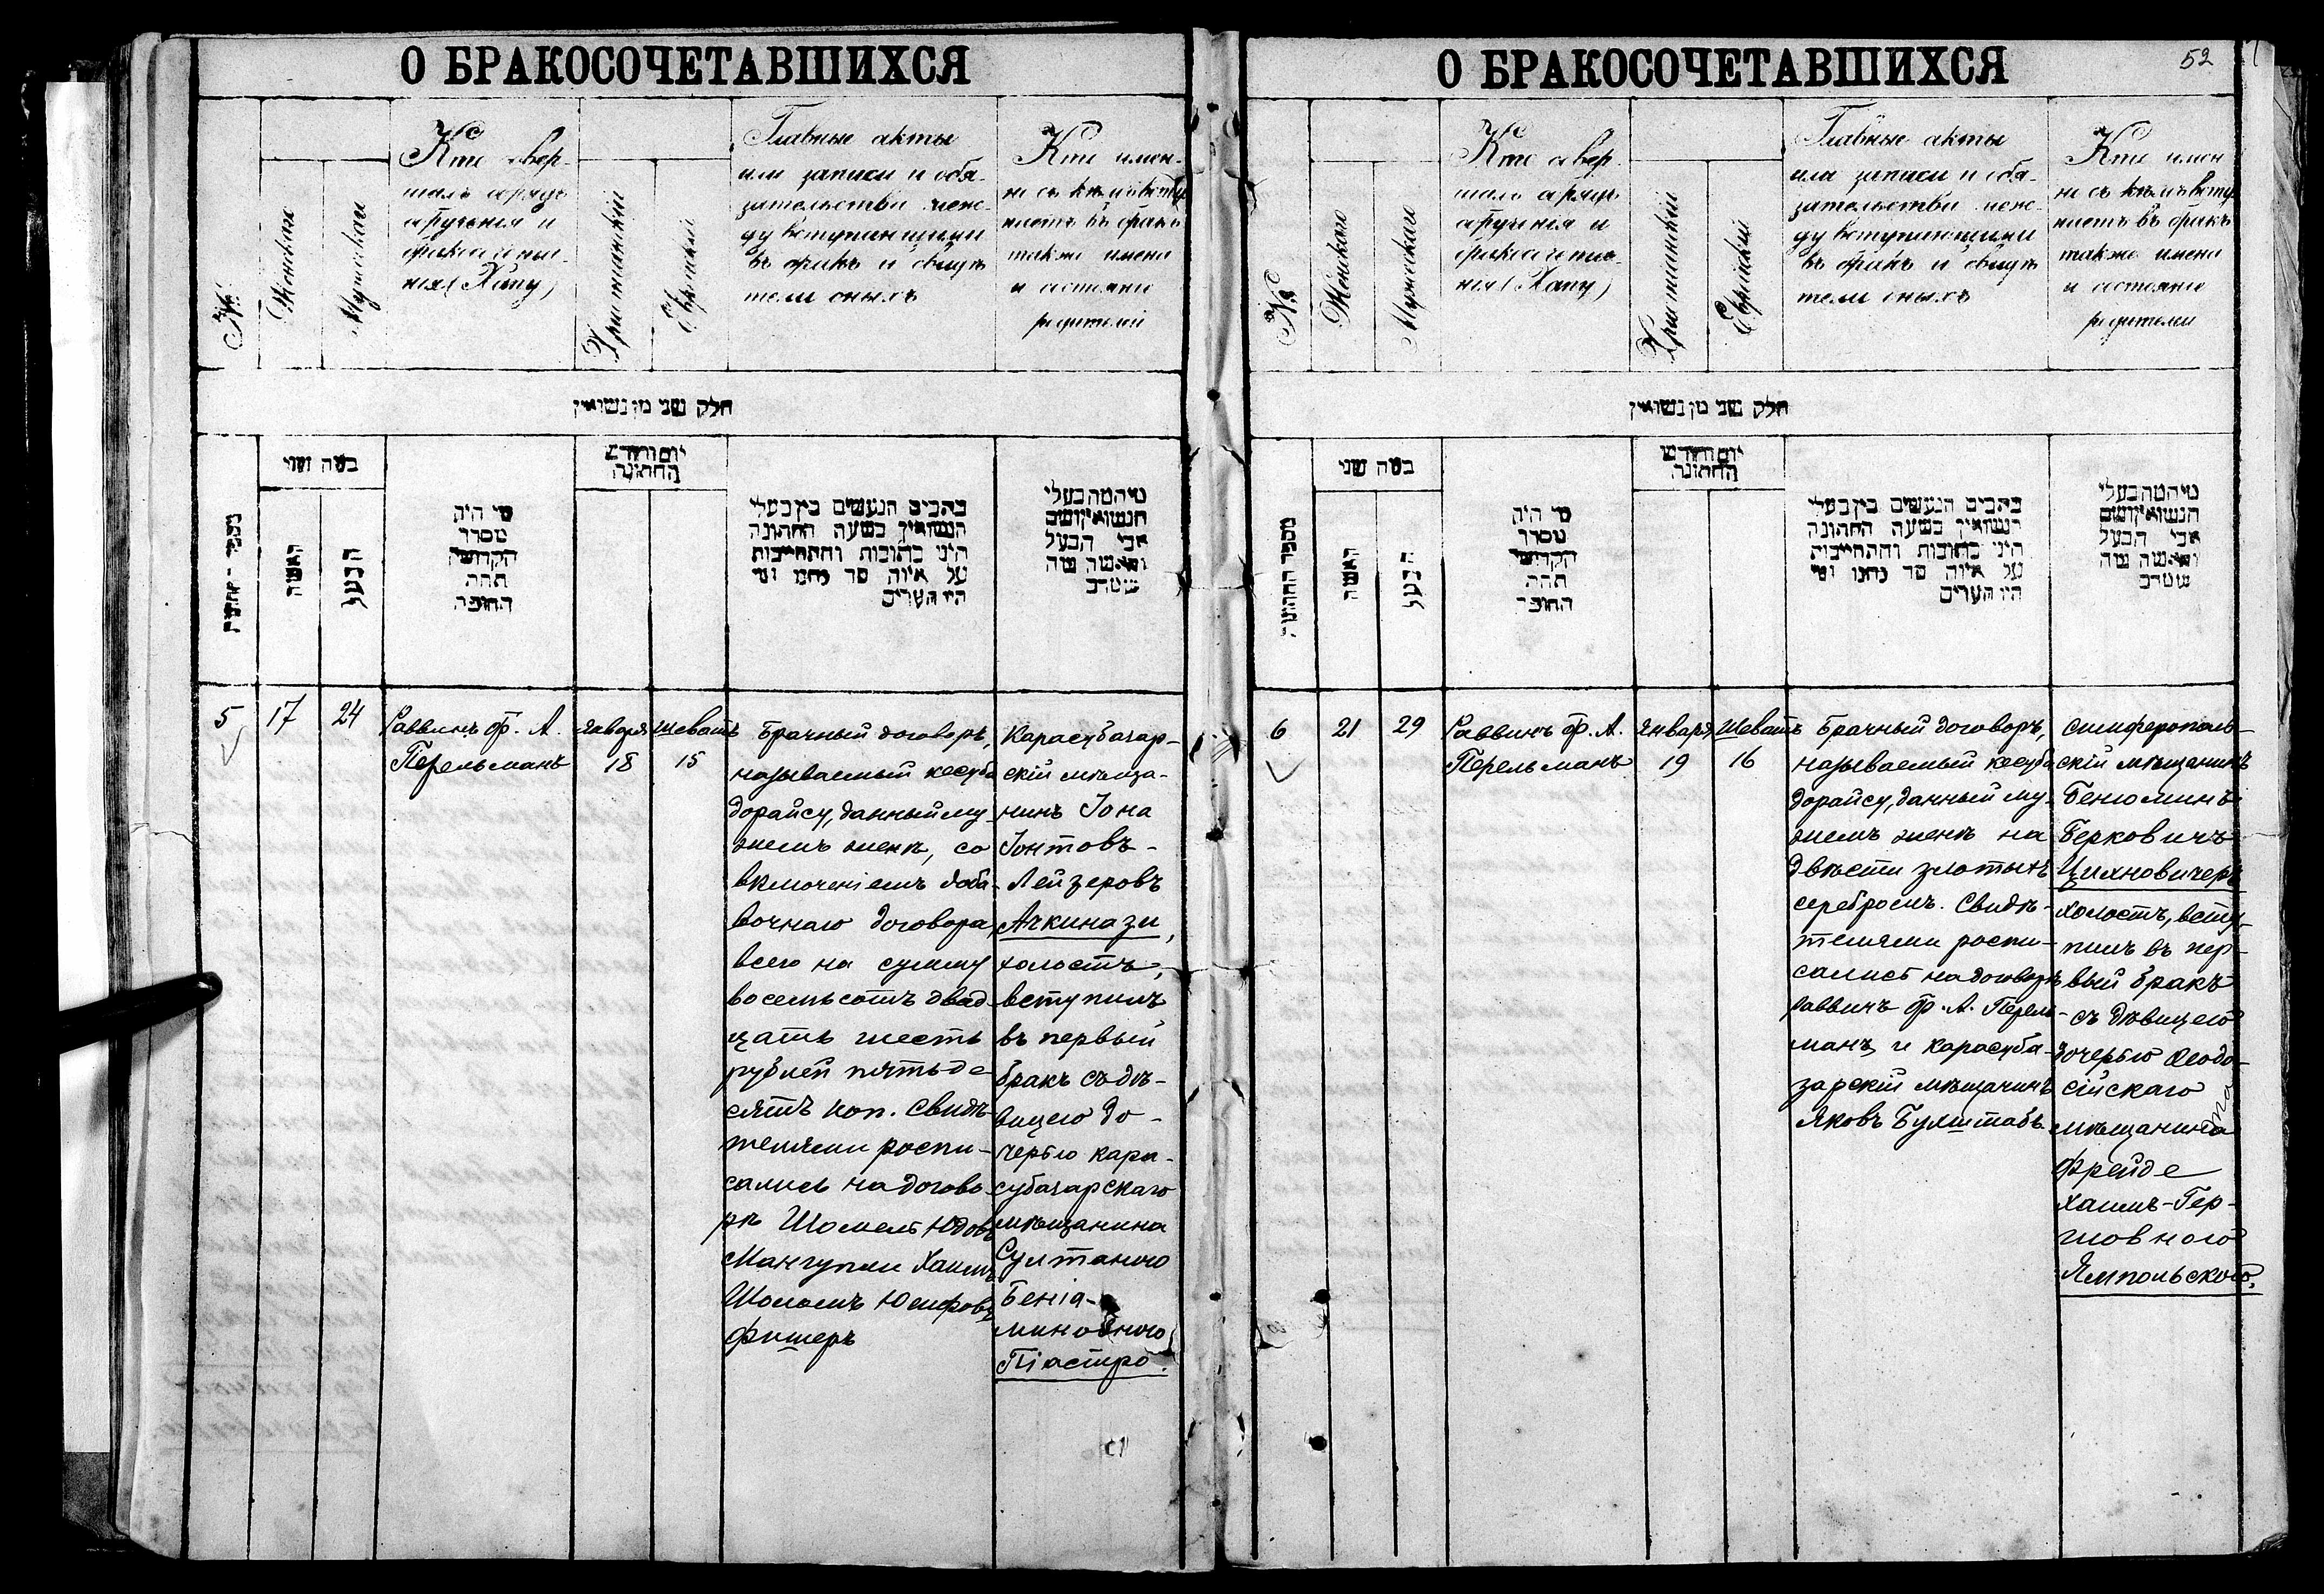 О БРАКОСОЧЕТАВШИХСЯ
№
Женскаго
Мужескаго
Кто совер-
шалъ обрядъ
обрученія и
бракосочета-
нія (Хапу)
Христіанскій
Еврейскій
Главные акты
или записи и обя-
зательства меж-
ду вступающими
въ бракъ и свидѣ
тели оныхъ
Кто имен-
но съ кѣмъ всту
паетъ въ бракъ
также имена
и состояніе
родителей
חלק שני מן נשואין
האשה
הבעל
מי היה
מסדר
הקדושין
תחת
החופה
יום וחדש
החתונה
כתבים הנעשים בין בעלי
הנשואין בשעה החתונה
היני כתובות והתחייבות
על איזה סך נתנו ומי
היו העדים
5
17
24
Раввинъ Ф. А.
Перельманъ
Января
18
Шеватъ
15
Брачный договоръ,
называемый кесуба
дорайсу, данный му-
жемъ женѣ, со
включеніемъ доба-
вочнаго договора,
всего на сумму
восемьсотъ двад-
цать шесть
рублей пятьде
сятъ коп. Свидѣ-
телями роспи-
сались на догово-
рѣ Шомель Юдовъ
Мангупли Хаимъ
Шоломъ Юсифовъ
Фишеръ
Карасубазар-
скій мѣща-
нинъ Іона
Іонтовъ-
Лейзеровъ
Ачкинази,
холостъ,
вступилъ
въ первый
бракъ съ дѣ-
вицею до-
черью кара-
субазарскаго
мѣщанина
Султаною
Беніа-
миновною
Піастро.
О БРАКОСОЧЕТАВШИХСЯ
52
№
Женскаго
Мужескаго
Кто совер
шалъ обрядъ
обрученія и
бракосочета-
нія (Хапу)
Христіанскій
Еврейскій
Главные акты
или записи и обя-
зательства меж-
ду вступающими
въ бракъ и свидѣ
тели оныхъ
Кто имен
но съ кѣмъ всту
паетъ въ бракъ
также имена
и состояніе
родителей
חלק שני מן נשואין
האשה
הבעל
מי היה
מסדר
הקדושין
תחת
החופה
יום וחדש
החתונה
כתבים הנעשים בין בעלי
הנשואין בשעה החתונה
היני כתובות והתחייבות
על איזה סך נתנו ומי
היו העדים
6
21
29
Раввинъ Ф. А.
Перельманъ
Января
19
Шеватъ
16
Брачный договоръ,
называемый кесуба
дорайсу, данный му-
жемъ женѣ на
двѣсти злотыхъ
серебромъ. Свидѣ-
телями роспи-
сались на договорѣ
раввинъ Ф. А. Перель-
манъ и карасуба-
зарскій мѣщанинъ
Яковъ Булштабъ
Симферополь-
скій мѣщанинъ
Беніоминъ
Берковичъ
Цихновичеръ
холостъ, всту-
пилъ въ пер-
вый бракъ
съ дѣвицею
дочерью Ѳеодо-
сійскаго
мѣщанина
Фрейде
Хаимъ-Гер-
шовною
Ямпольскою.